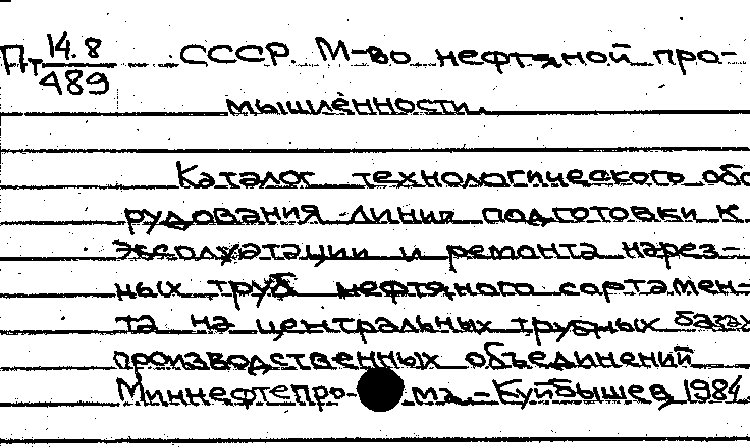 Пт 14.8/489 СССР. М-во нефтяной про-
мышленности.
Каталог технологического обо
рудования линии подготовки к
эксплуатации и ремонта нарез-
ных труб нефтяного сортамен-
та на центральных трубных базах
производственных объединений
Миннефтепро-ма.-Куйбышев, 1984.